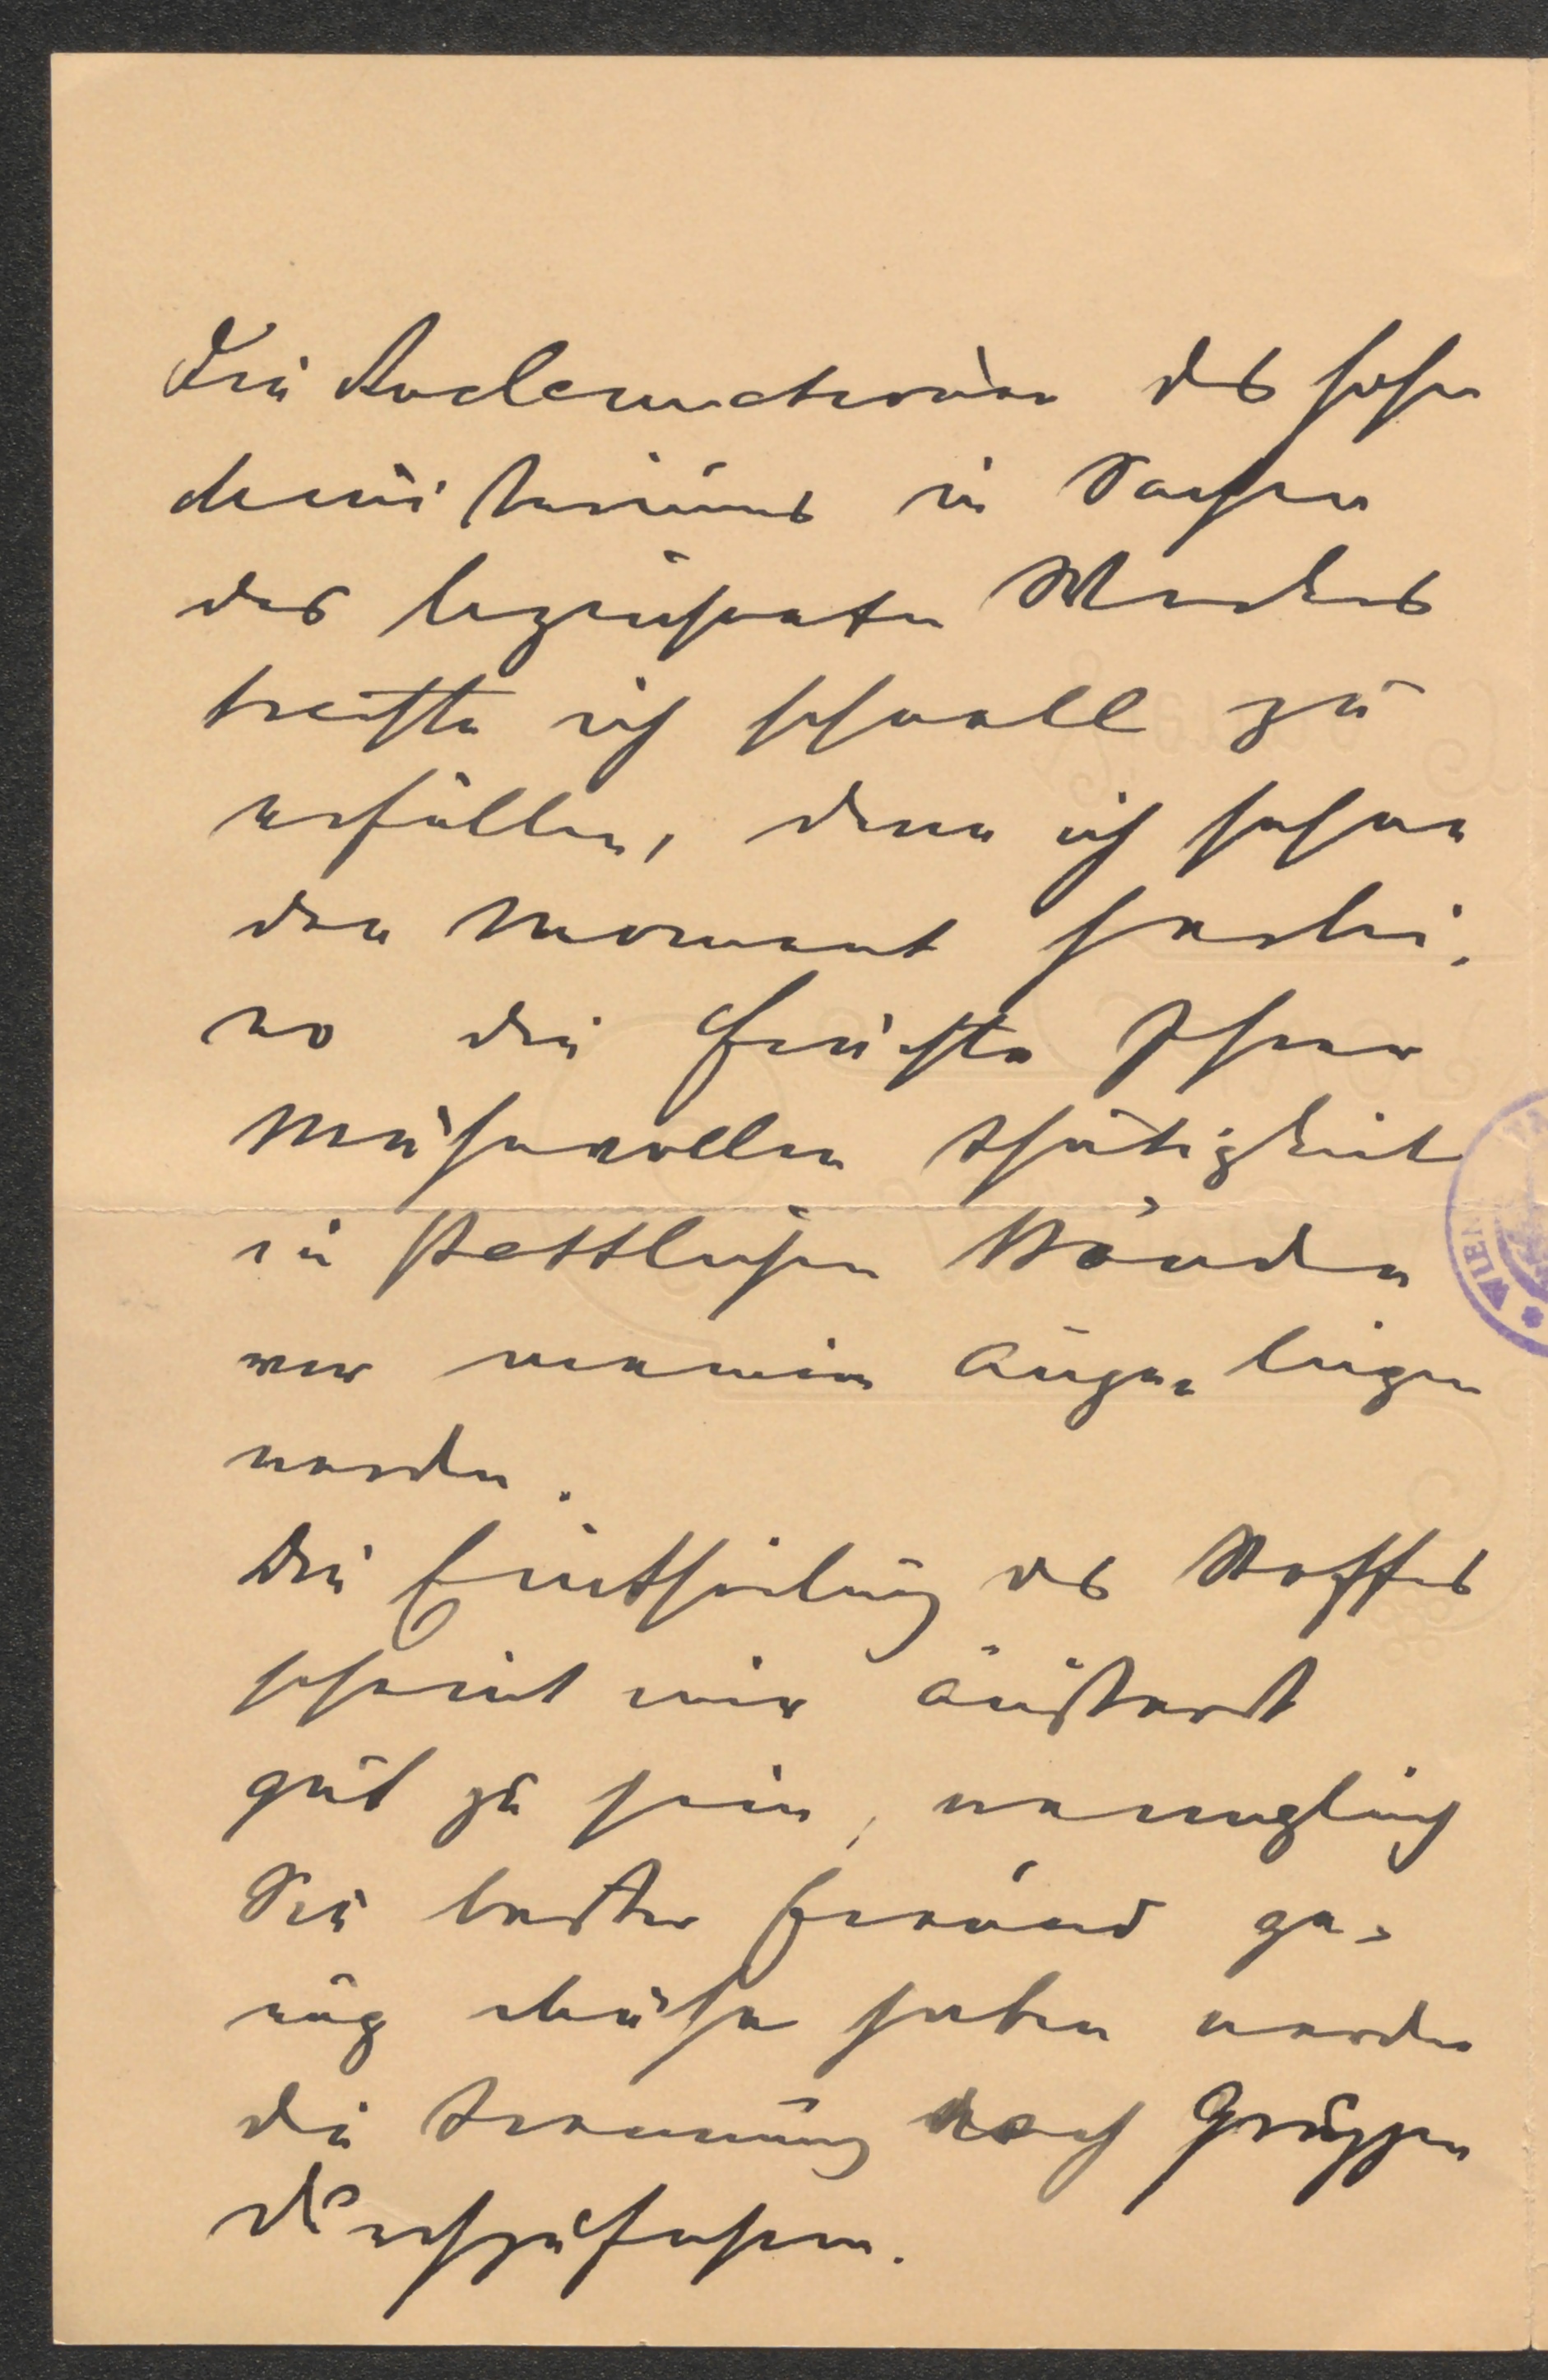 Die Reclamationen des hohen
Ministeriums in Sachen
des bezeichneten Werkes
trachte ich schnell zu
erfüllen, denn ich sehne
den Moment herbei,
wo die Früchte Ihrer
Mühevollen Thätigkeit
in stattlichen Bänden
vor meinen Augen liegen
werden.
Die Eintheilung des Stoffes
scheint mir äußerst
gut zu sein, wenngleich
Sie bester Freund ge-
nug Mühe haben werden
die Trennung nach Gruppen
durchzuführen.
WIEN